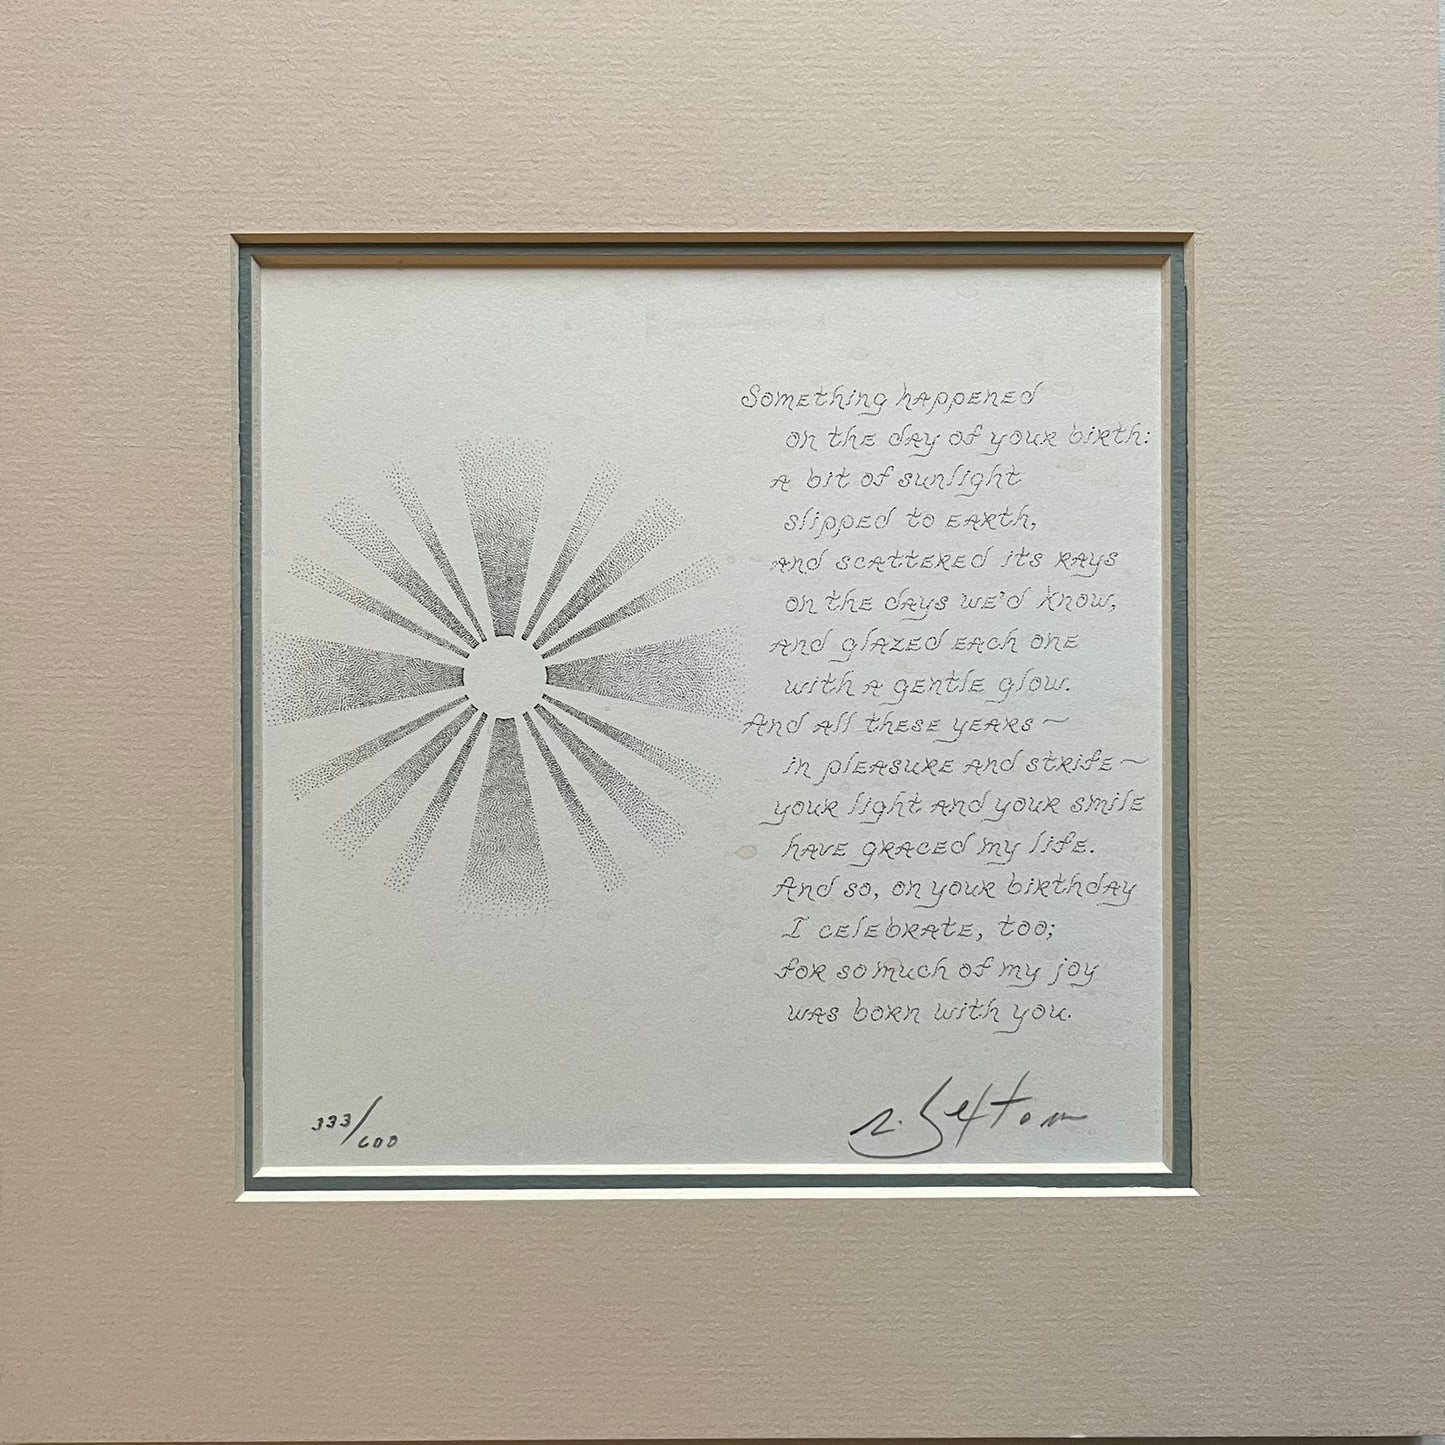 Something happened
on the day of your birth:
A bit of sunlight
slipped to earth,
and scattered its rays
on the days we'd know,
and glazed each one
with a gentle glow.
And all these years ~
in pleasure and strife ~
your light and your smile
have graced my life.
And so, on your birthday
I celebrate, too;
for so much of my joy
was born with you.
333/600